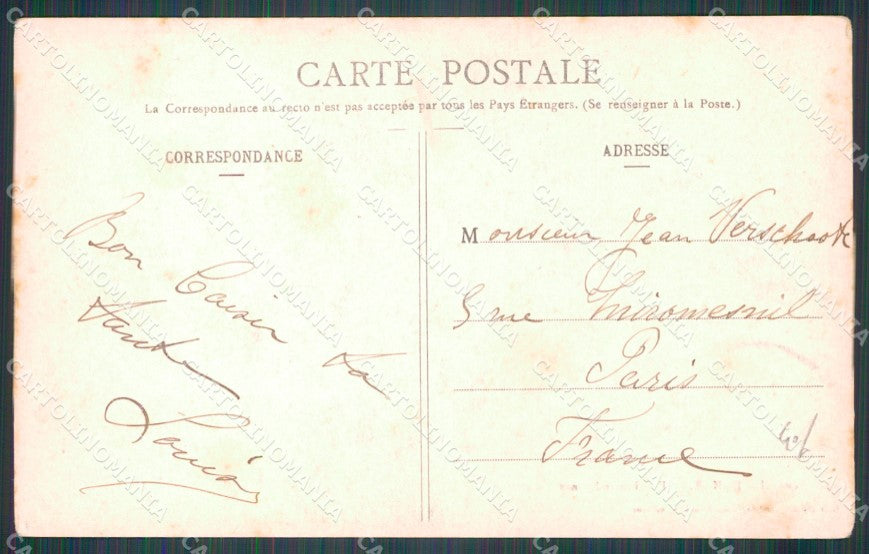 CARTE POSTALE
La Correspondance au recto n'est pas acceptée par tous les Pays Étrangers. (Se renseigner à la Poste.)
CORRESPONDANCE
Bon
Baiser ta
tante
Louisa
ADRESSE
Monsieur Jean Verschoote
5 rue Miromesnil
Paris
France
CARTOLINOMANIA